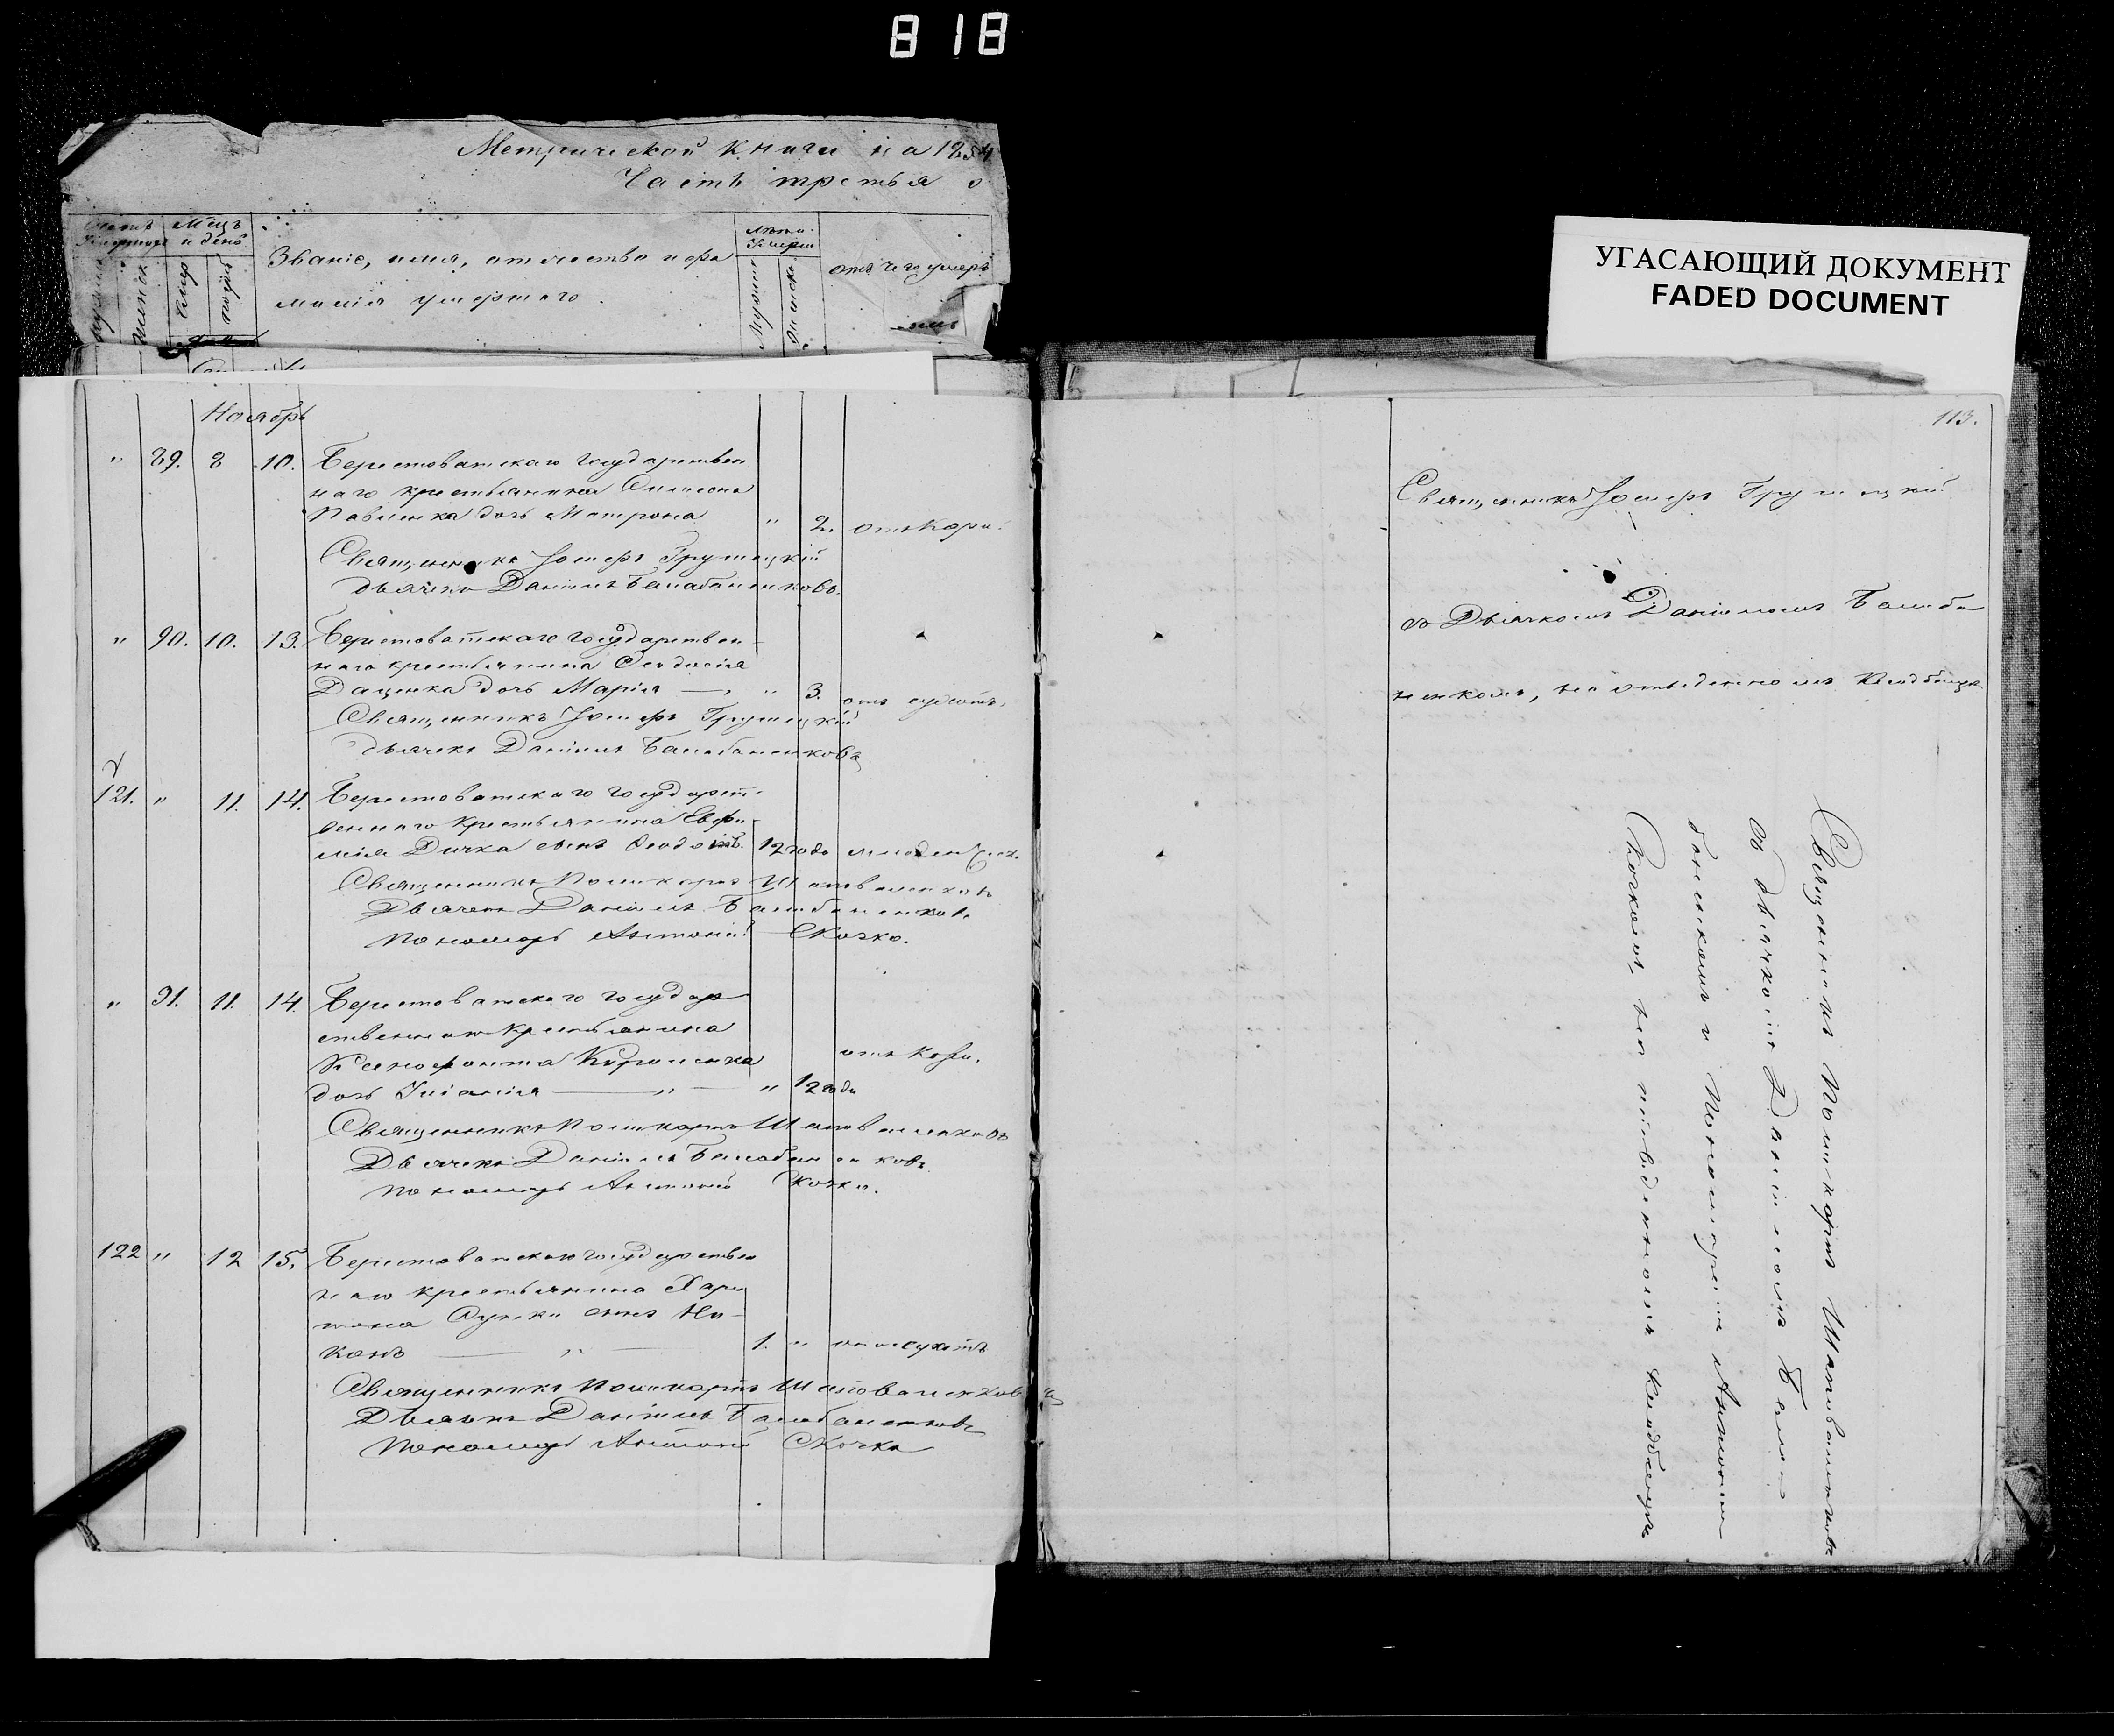 818
Метрической книги на 1854
Часть третья о
Счетъ умершихъ
Мѣцъ и день
Званіе, имя, отчество и фа
милія умершаго.
Лѣта умерш
отъ чего умеръ
мужска
женска
смер
погреб
УГАСАЮЩИЙ ДОКУМЕНТ
FADED DOCUMENT
113.
Ноябрь
" 89. 8 10. Берестоватскаго государствен
наго крестьянина Симеона
Павленка дочь Матрона " 2. отъ кори.
Священникъ Іосифъ Грушецкій
дьячекъ Даніилъ Балабаненковъ.
" 90. 10. 13. Берестоватскаго государствен
наго крестьянина Феодосія
Даценка дочь Марія " 3. отъ сухотъ.
Священникъ Іосифъ Грушецкій
дьячекъ Даніилъ Балабаненковъ
121. " 11. 14. Берестоватскаго государст
веннаго крестьянина Евфи
мія Дичка сынъ 1/2 года младен.
Священникъ Поликарпъ Шаповаленковъ
Дьячекъ Даніилъ Балабаненковъ
Пономарь Антоній Скочко.
" 91. 11. 14. Берестоватскаго государ
ственнаго крестьянина
Ксенофонта отъ кори.
дочь Іуліанія " 1/2 года
Священникъ Поликарпъ Шаповаленковъ
Дьячекъ Даніилъ Балабаненковъ
Пономарь Антоній Скочко.
122 " 12 15. Берестоватскаго государствен
наго крестьянина Хари
тона сынъ Ни
конъ 1. " отъ сухотъ
Священникъ Поликарпъ Шаповаленковъ
Дьячекъ Даніилъ Балабаненковъ
Пономарь Антоній Скочко
Священникъ Іосифъ Грушецкій
съ Дьячкомъ Даніиломъ Балаба
ненкомъ, на отведенномъ кладбищѣ
Священникъ Поликарпъ Шаповаленковъ
съ дьячкомъ Даніиломъ Бала
баненкомъ и Пономаремъ Антоніемъ
Скочкомъ, на отведенномъ кладбищѣ